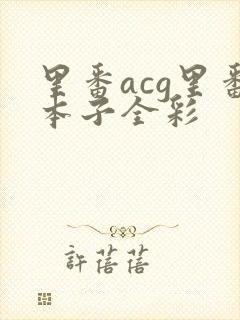 里番acg里番
本子全彩
許蓓蓓